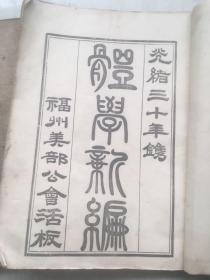 光緒三十年鐫
體學新編
福州美部公會活板